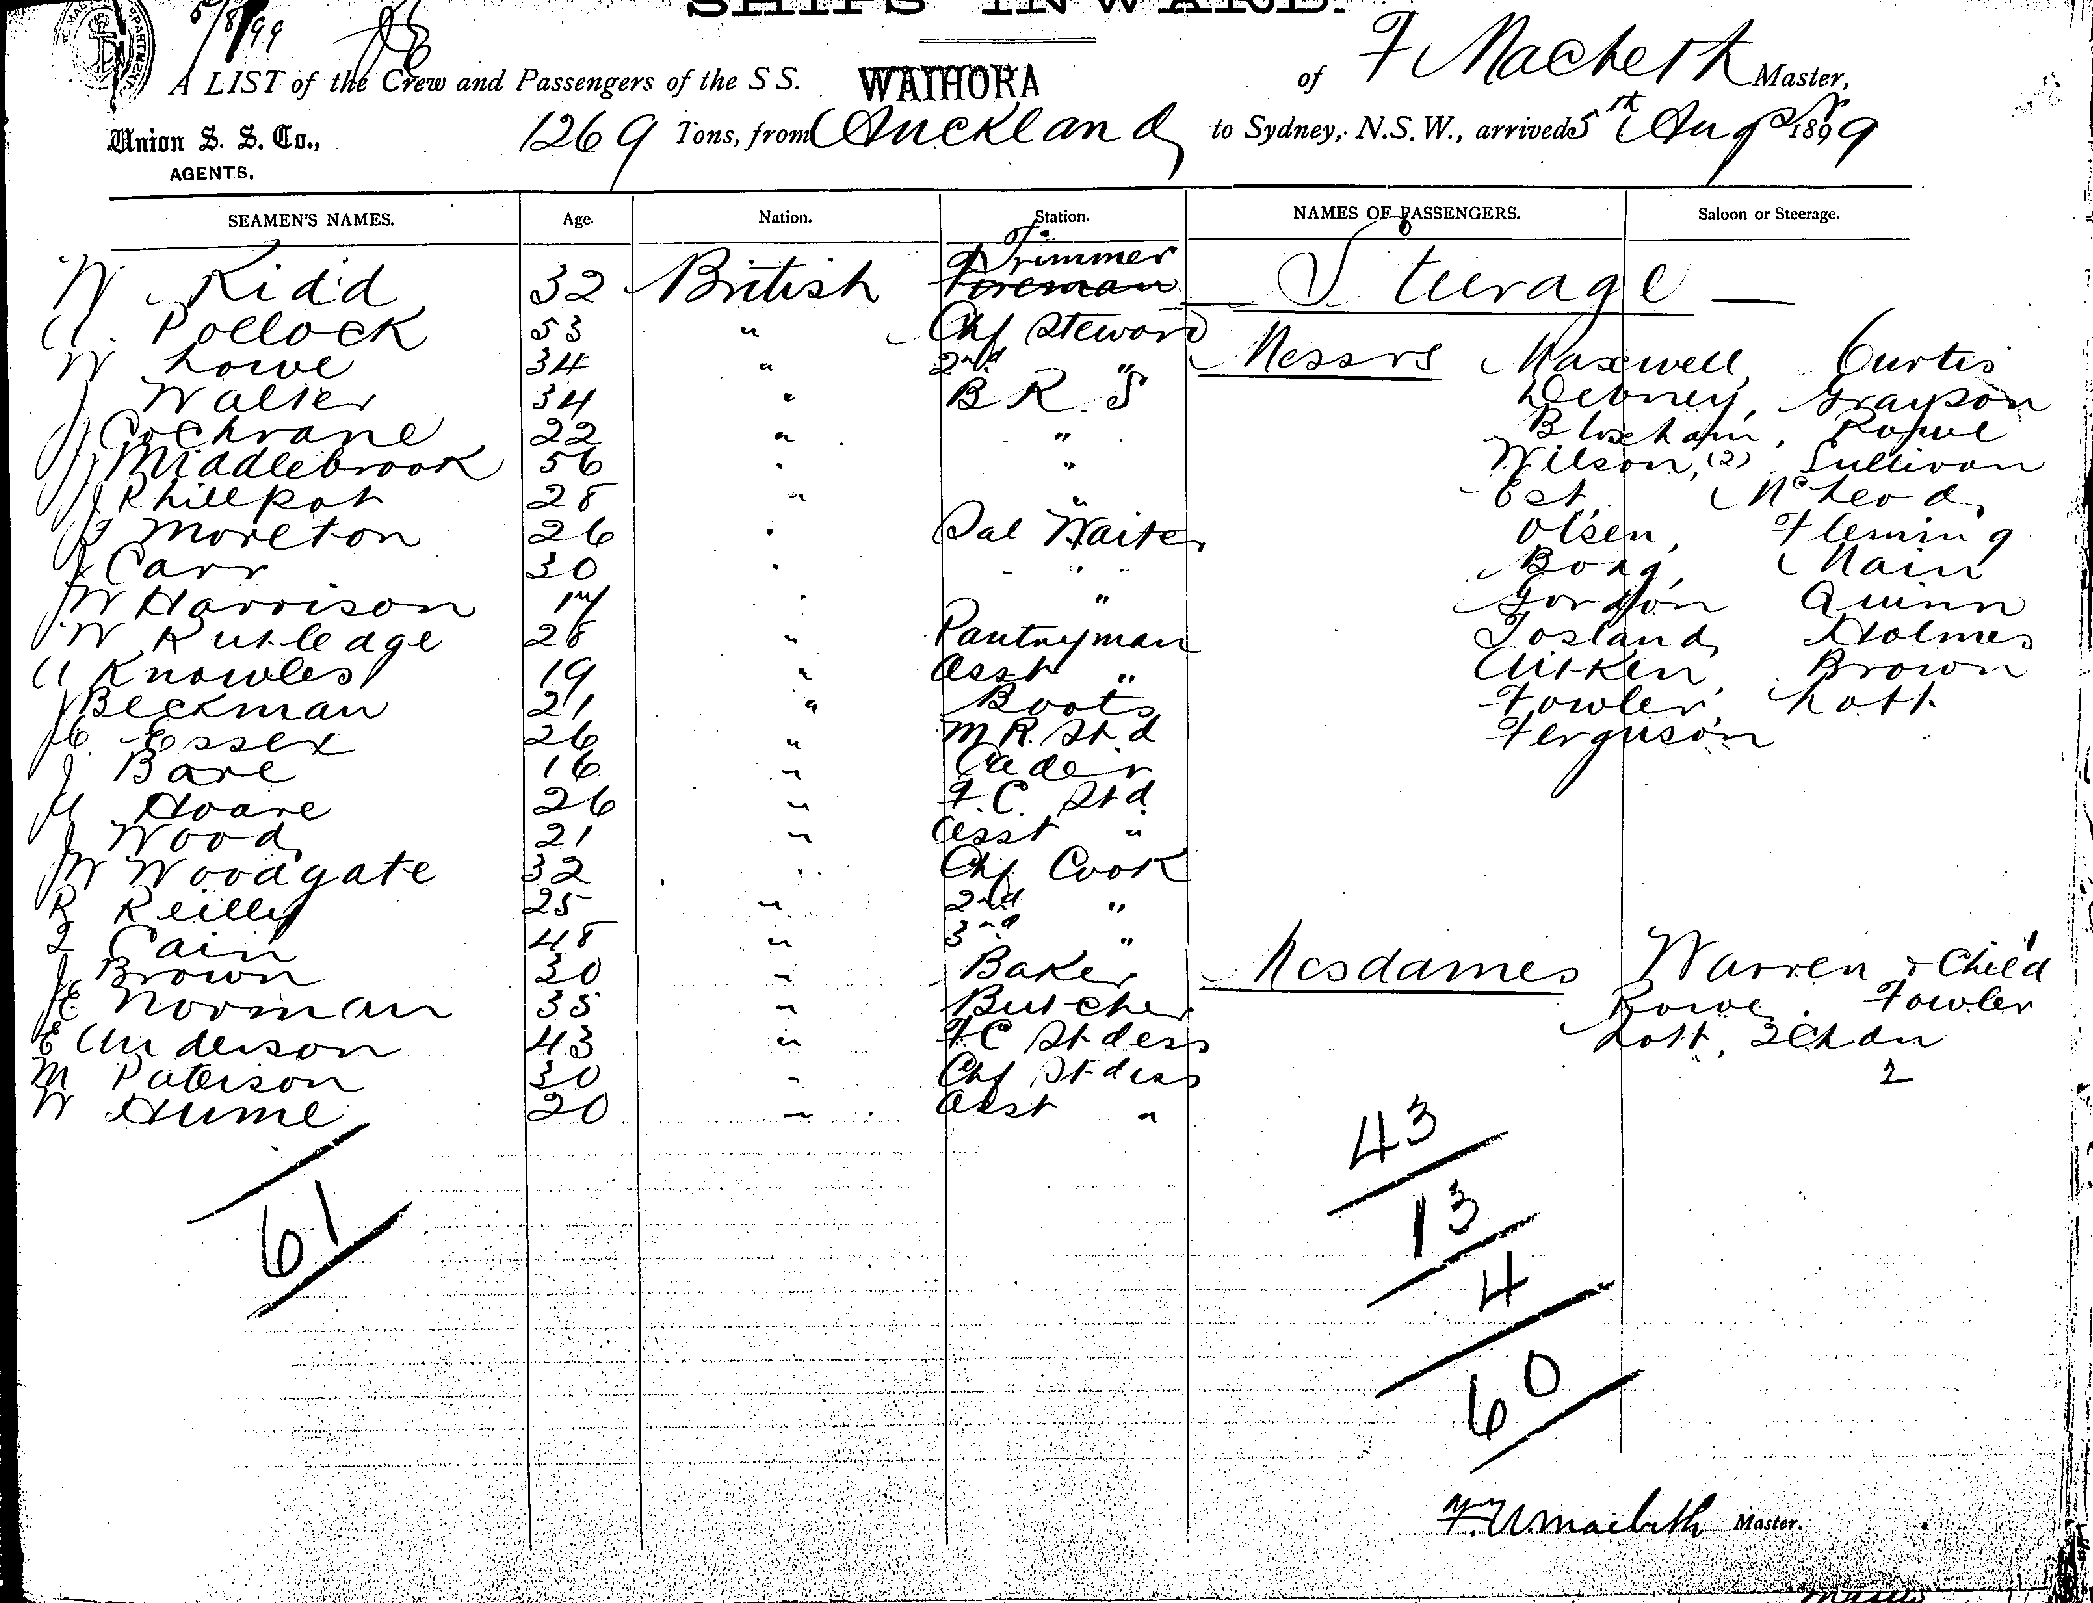 SHIPS INWARD.
5/8/99
A LIST of the Crew and Passengers of the S S. WAIHORA of F Macbeth Master,
Union S. S. Co.,
AGENTS.
1269 Tons, from Auckland to Sydney, N.S.W., arrived 5th Aug 1899
SEAMEN'S NAMES. Age. Nation. Station. NAMES OF PASSENGERS. Saloon or Steerage.
W Kidd 32 British Trimmer Foreman
Steerage
A. Pollock 53 " Chf Steward
W Lowe 34 " 2nd "
Messrs Maxwell, Curtis
J Walter 34 " B R. S
Debney, Grayson
J Cochrane 22 " "
Bloxham, Rowe
J Middlebrook 56 " "
Wilson, (2) Sullivan
J Phillpot 28 " "
Est, McLeod,
G Moreton 26 " Sal Waiter
Olsen, Fleming
J Carr 30 " "
Bong, Main
W Harrison 17 " "
Gordon Quinn
W Rutledge 28 " Pantryman
Tosland, Holmes
A Knowles 19 " Asst "
Aitken, Brown
J Beckman 21 " Boots
Fowler, Lott.
C. Essex 26 " M.R. Std
Ferguson
J Bare 16 " Cader
A Hoare 26 " F.C. Std.
J Wood 21 " Asst "
W Woodgate 32 " Chf Cook
R Reilly 25 " 2nd "
Cain 48 " 3rd "
J Brown 30 " Baker
Mesdames Warren & Child
H Norman 35 " Butcher
Rowe. Fowler
E Anderson 43 " F C Stdess
Lott, 2 Chdn
M Paterson 30 " Chf Stdess
2
W Hume 20 " Asst "
43
61
13
4
60
F. A Macbeth Master.